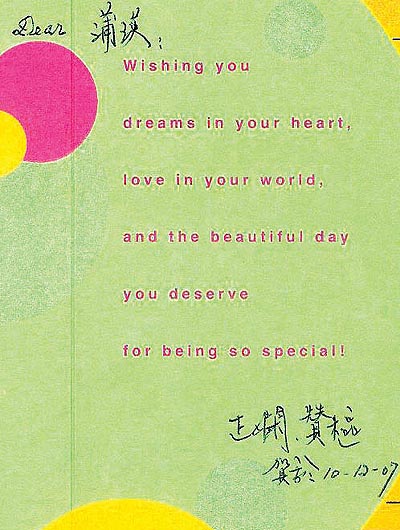 Dear 蒲瑛：
Wishing you
dreams in your heart,
love in your world,
and the beautiful day
you deserve
for being so special!
賀於 10-12-07